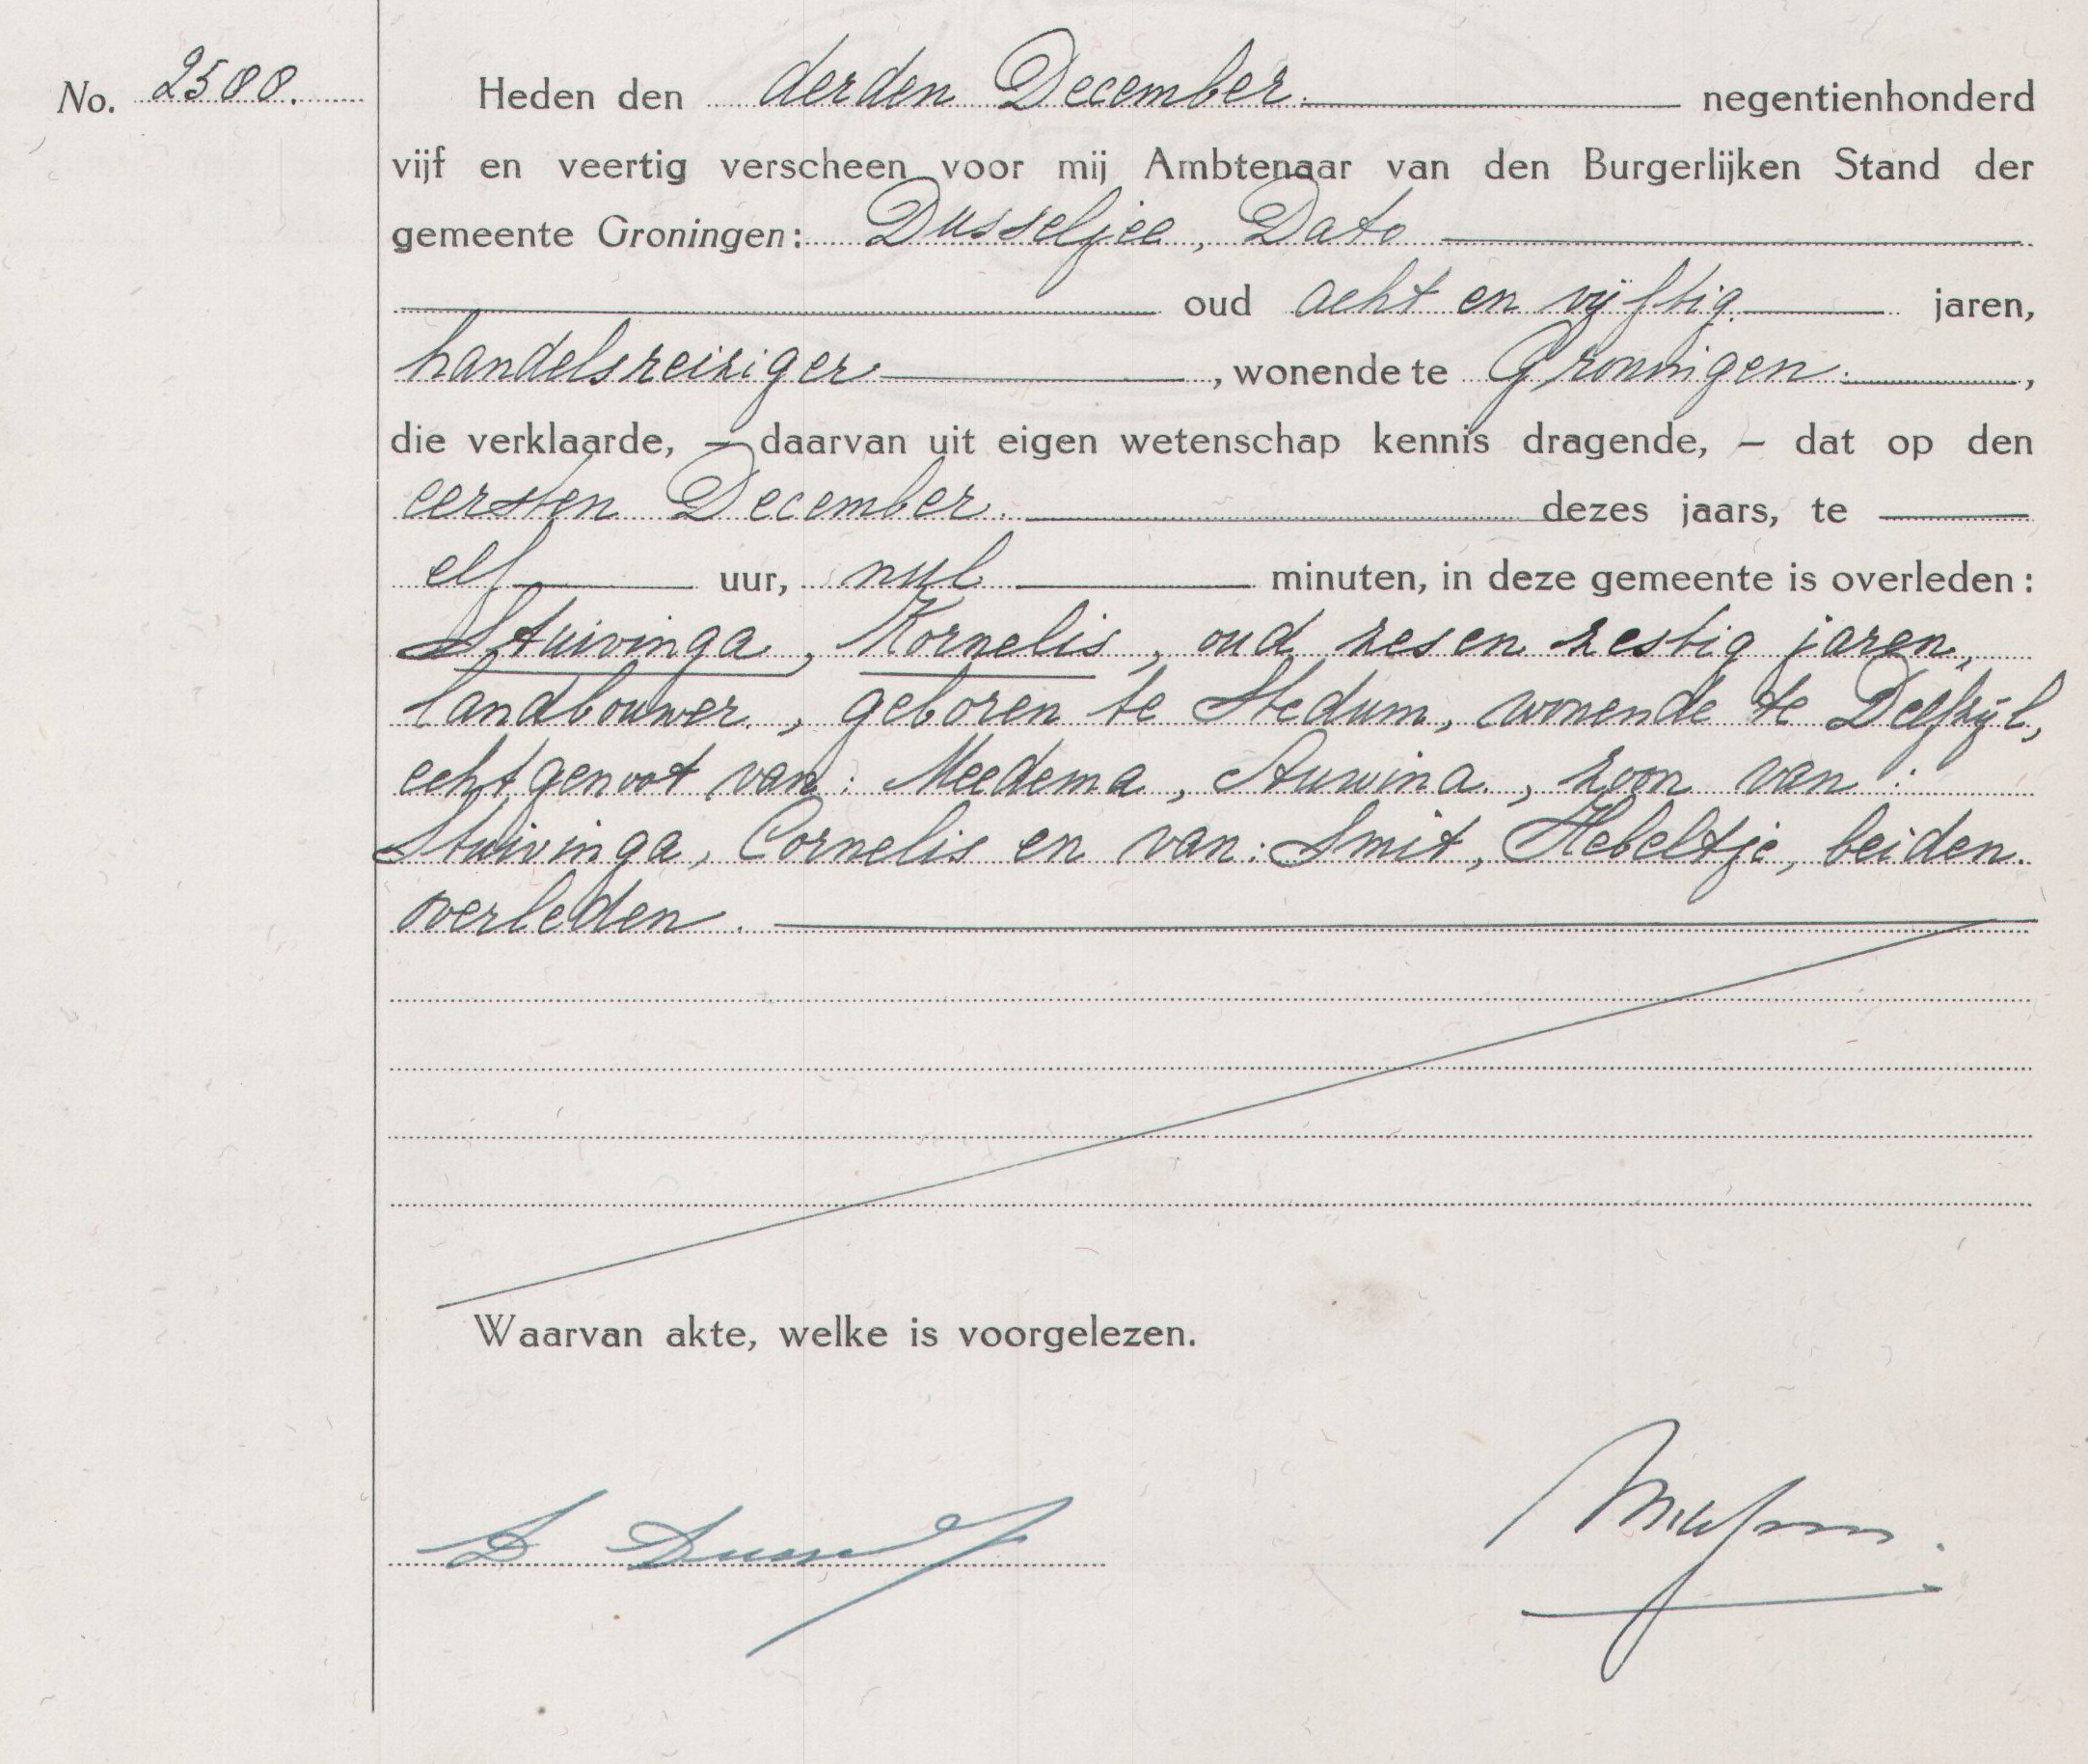 No. 2588.
Heden den derden December. negentienhonderd
vijf en veertig verscheen voor mij Ambtenaar van den Burgerlijken Stand der
gemeente Groningen: Dusseljee, Dato
oud acht en vijftig jaren,
handelsreiziger, wonende te Groningen.,
die verklaarde, — daarvan uit eigen wetenschap kennis dragende, — dat op den
eersten December. dezes jaars, te
elf uur, nul minuten, in deze gemeente is overleden:
Stuivinga, Kornelis, oud zes en zestig jaren,
landbouwer, geboren te Stedum, wonende te Delfzijl,
echtgenoot van: Meedema, Auwina., zoon van:
Stuivinga, Cornelis en van: Smit, Hebeltje, beiden.
overleden.
Waarvan akte, welke is voorgelezen.